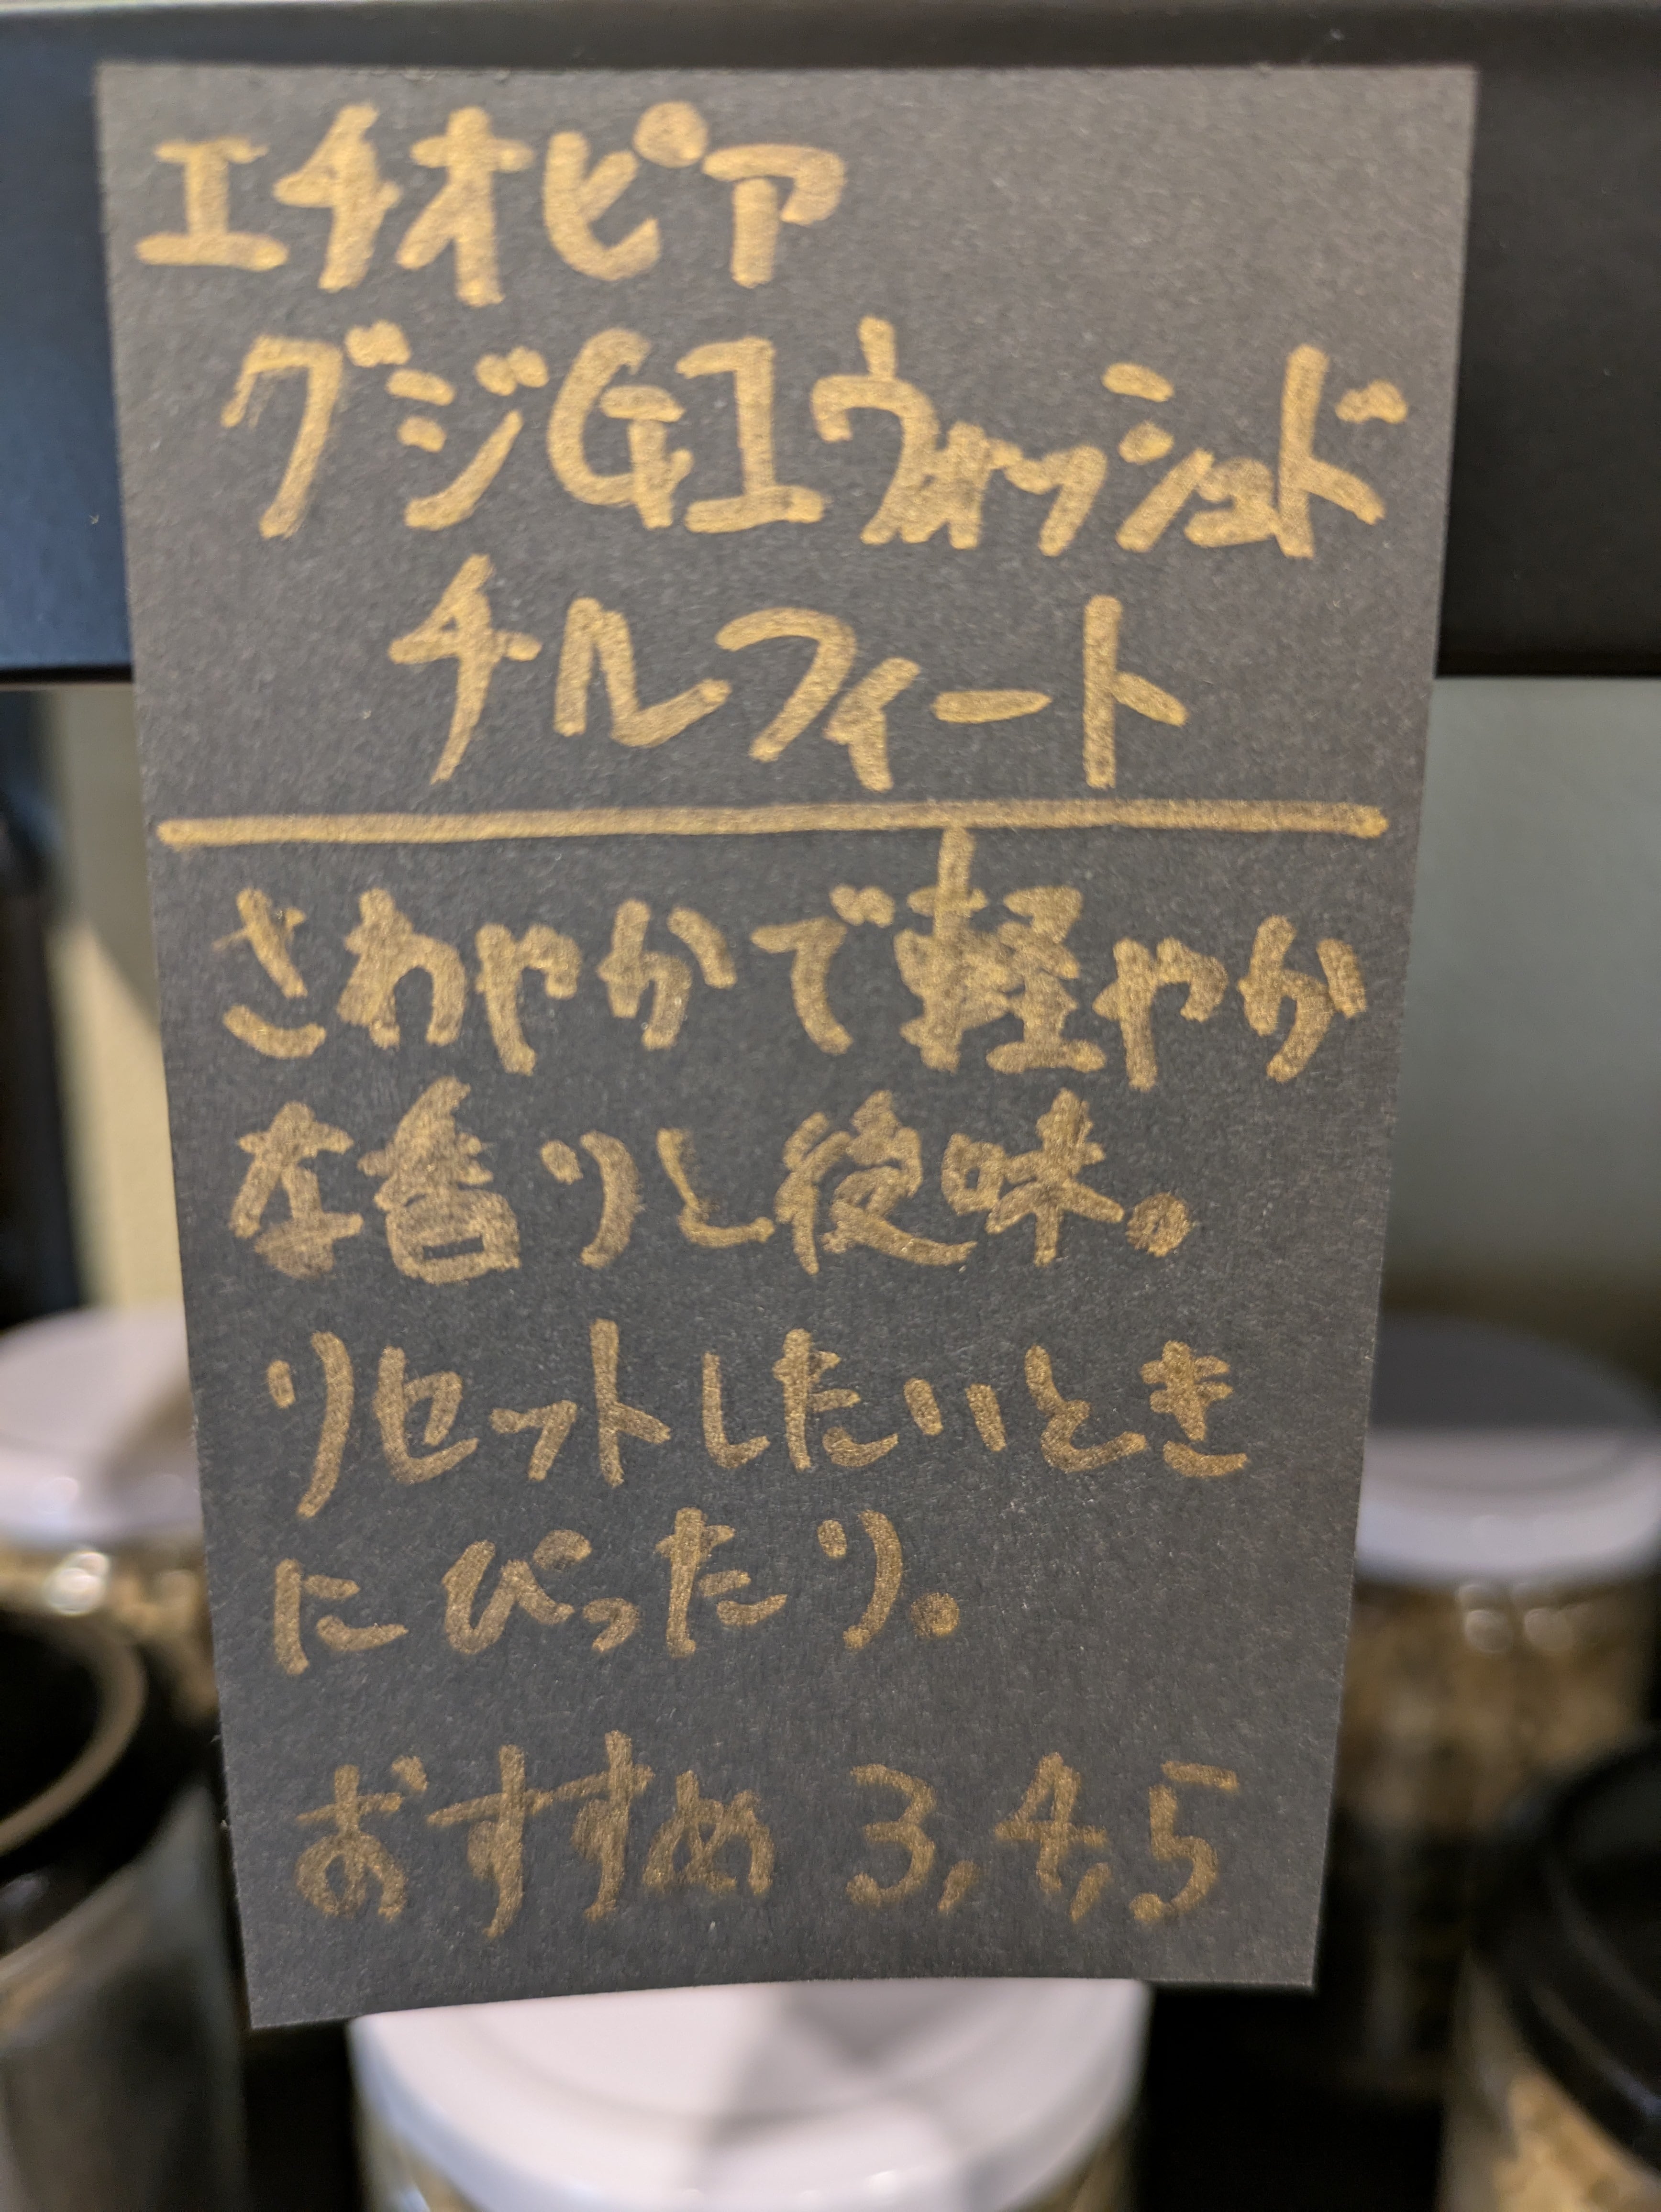 エチオピア
グジG1ウォッシュド
チルフィート
さわやかで軽やか
な香りと後味。
リセットしたいとき
にぴったり。
おすすめ 3,4,5